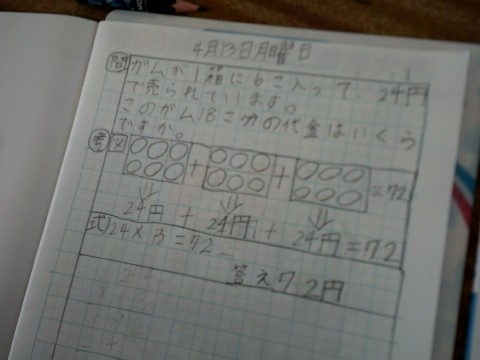 4月13日月曜日
問 ガムが1箱に6こ入って、24円
で売られています。
このガム18こ分の代金はいくら
ですか。
考 図 + + =72
24円 + 24円 + 24円=72
式 24×3=72
答え72円